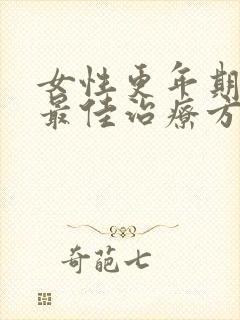 女性更年期
最佳治疗方
奇葩七